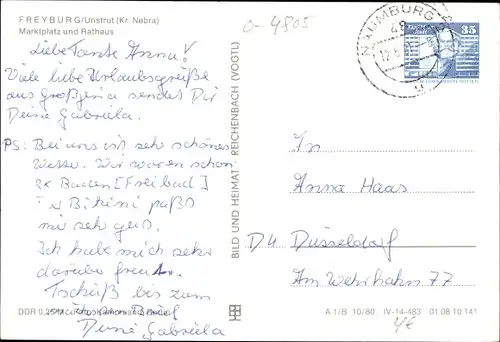 FREYBURG/Unstrut (Kr. Nebra)
Marktplatz und Rathaus
0-4805
35
Liebe Tante Anna!
Viele liebe Urlaubsgrüße
aus Großjena sendet Dir
Deine Gabriela.
PS: Bei uns ist sehr schönes
Wetter. Wir waren schon
2x Baden [Freibad]
Bikini paßt
mir sehr gut.
Ich habe mich sehr
darüber gefreut.
Tschüß bis zum
Deine Gabriela
BILD UND HEIMAT REICHENBACH (VOGTL)
An
Anna Haas
D4 Düsseldorf
Am Wehrhahn 77
DDR 0,25 M
A 1/B 10/80 IV-14-483 01 08 10 141